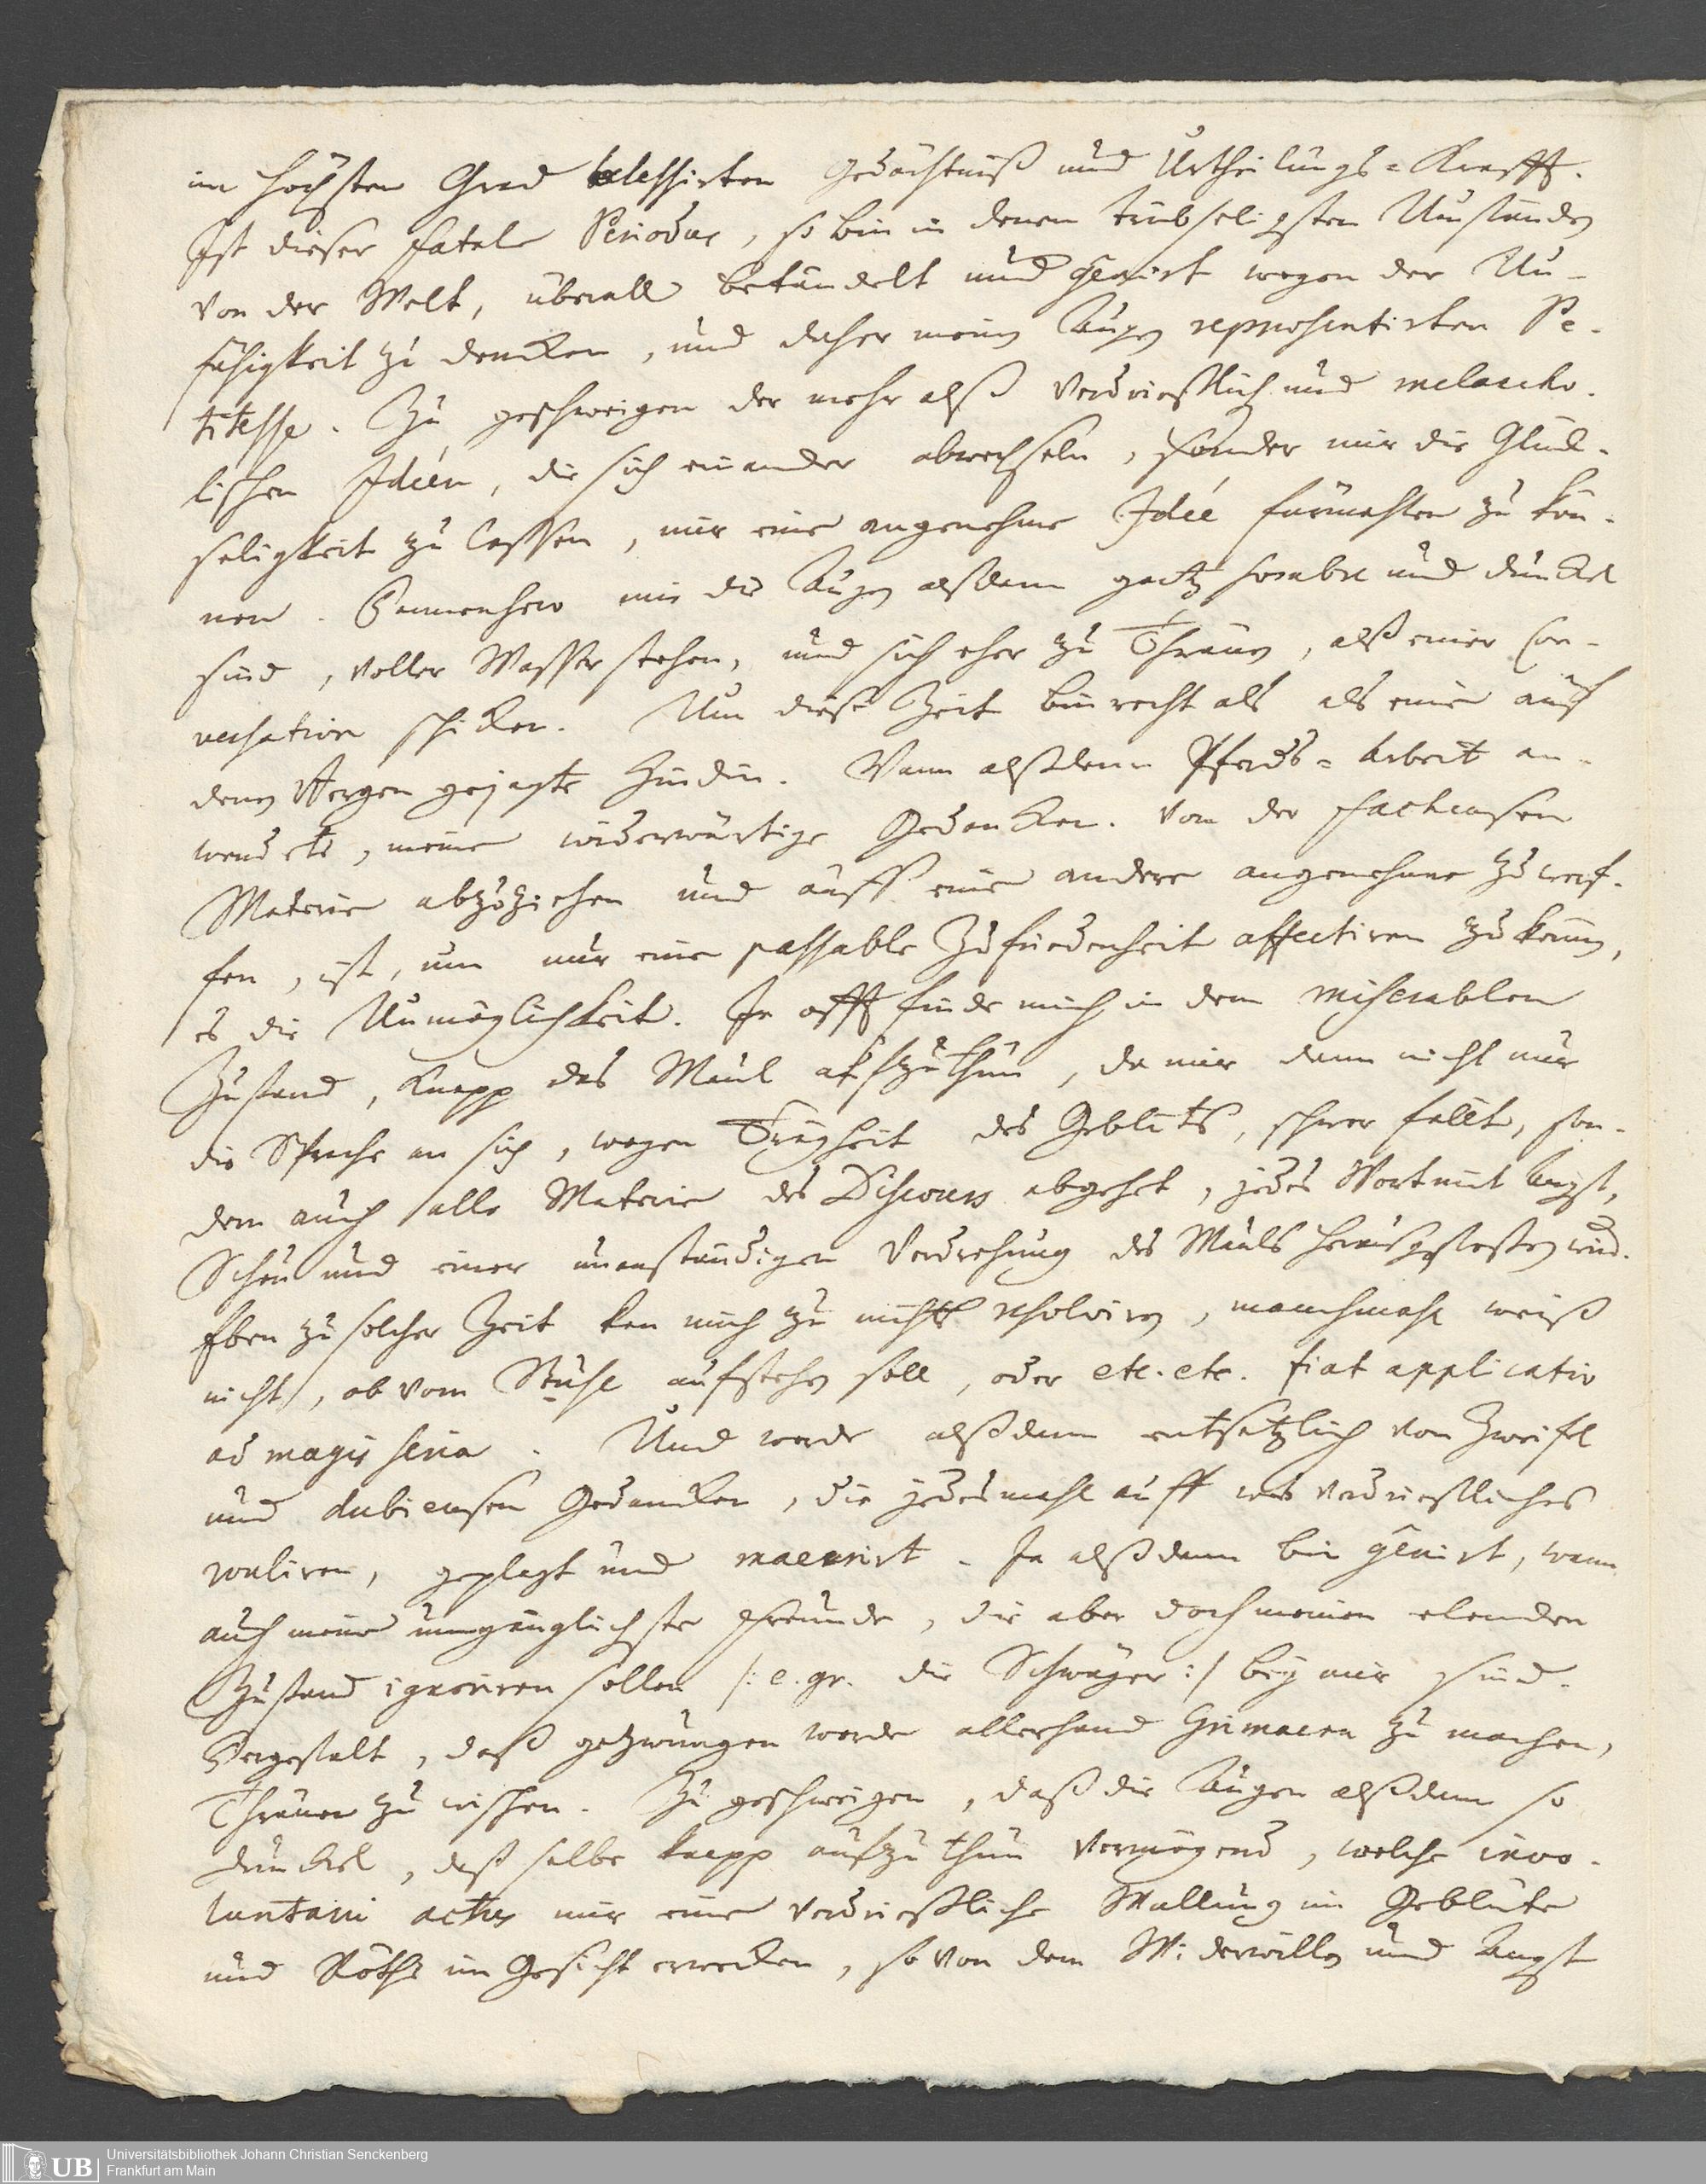 im höchsten Grad blessirten Gedächtniß und Urtheilungs=Krafft.
Ist dieser fatale Periodus, so bin in denen trübseligsten Umständen
von der Welt, überall betändelt und gênirt wegen der Un-
fähigkeit zu dencken, und daher meinen Augen repræsentirten Pe-
titesse. Zu geschweigen der mehr alß verdrießlich und melancho-
lischen Idéen, die sich einander abwechseln, sonder mir die Glück-
seligkeit zu lassen, mir eine angenehme Idée fürmahlen zu kön-
nen. Immenhero mir die Augen alßdann gantz sombre und dunckel
sind, voller Wasser stehen, und sich eher zu Thränen, alß einer Con-
versation schicken. Um diese Zeit bin recht als als eine auf
denen Bergen gejagte Hündin. Wann alßdann Pferds=Arbeit an-
wendete, meine widerwärtige Gedancken von der facheusen
Materie abzuziehen und auff eine andere angenehme zu werf-
fen, ist, um nur eine passable Zufriedenheit affectiren zu können,
es die Unmöglichkeit. Ja offt finde mich in dem miserablen
Zustand, knapp das Maul aufzuthun, da mir dann nicht nur
die Sprache an sich, wegen Trägheit des Geblüts, schwer fällt, son-
dern auch alle Materie des Discours abgehet, jedes Wort mit Angst,
Scheu und einer unanständigen Verdrehung des Mauls herausgestoßen wird.
Eben zu solcher Zeit kan mich zu nichts resolviren, manchmahl weiß
nicht, ob vom Stuhl aufstehen soll, oder etc. etc. fiat applicatio
ad magis seria. Und werde alßdann entsetzlich von Zweifel
und dubieusen Gedancken, die jedesmahl auff was verdrießliches
rouliren, geplagt und macerirt. Ja alßdann bin gênirt, wann
auch meine umgänglichste Freunde, die aber doch meinen elenden
Zustand ignoriren sollen /: e. gr. die Schwäger :/ bey mir sind.
Dergestalt, daß gezwungen werde allerhand Grimacen zu machen,
Thränen zu wischen. Zu geschweigen, daß die Augen alßdann so
dunckel, daß selbe knapp aufzuthun vermögend, welche invo-
luntarii actus mir eine verdrießliche Wallung im Geblüte
und Röthe im Gesicht erwecken, so von dem Widerwillen und Angst
Universitätsbibliothek Johann Christian Senckenberg
UB Frankfurt am Main